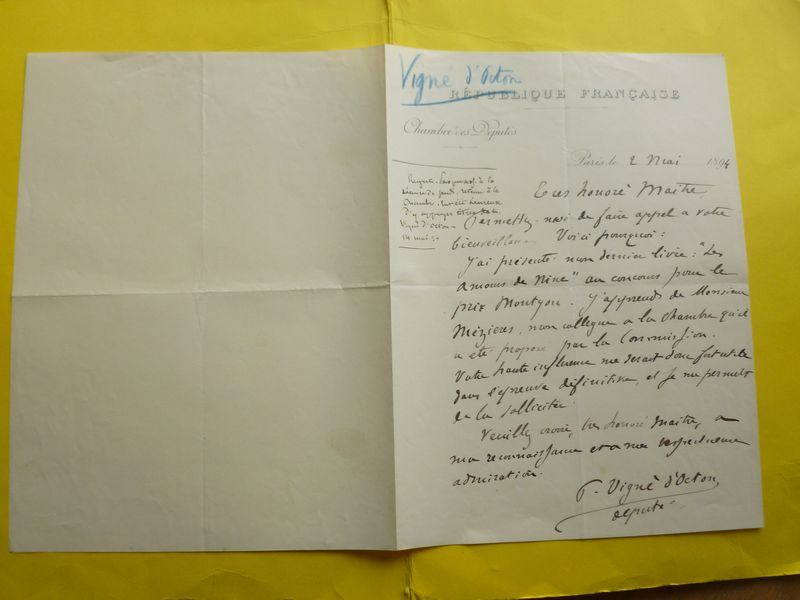 Vigné d'Octon
RÉPUBLIQUE FRANÇAISE
Chambre des Députés
Paris, le 2 Mai 1894
séance de jeudi, retenu à la
Chambre. heureux
Vigné d'Octon
Tres honoré Maître,
Permettez-moi de faire appel a votre
bienveillance. Voici pourquoi :
J'ai présenté mon dernier livre : "Les
amours de Nine" au concours pour le
prix Montyon. J'apprends de Monsieur
Mézières, mon collegue a la Chambre qu'il
a été proposé par la Commission.
Votre haute influence me serait donc fort utile
dans l'épreuve définitive, et je me permets
de la solliciter.
Veuillez croire, tres honoré Maître, a
ma reconnaissance et a ma respectueuse
admiration.
P. Vigné d'Octon
député